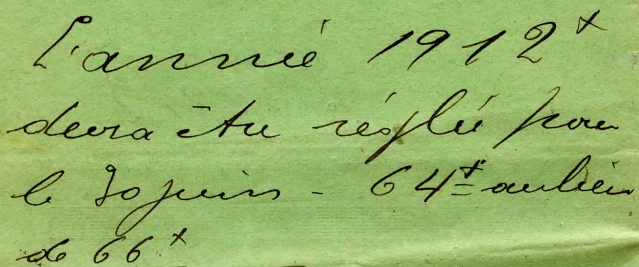 L'année 1912 x
devra être réglée pour
le 30 juin - 64 x au lieu
de 66 x